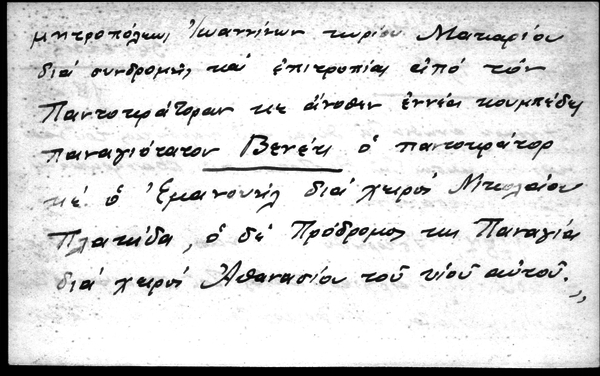 μητροπόλεως Ἰωαννίνων κυρίου Μακαρίου
διά συνδρομῆς καί ἐπιτροπίας ἀπό τόν
Παντοκράτοραν κε ἄνοθεν ἐννέα κουμπέδες
παναγιότατον Βενέκι ὁ παντοκράτορ
κέ ὁ Ἐμανουήλ διά χειρός Νικολαίου
Πλακίδα, ὁ δέ Πρόδρομος κε Παναγία
διά χειρός Ἀθανασίου τοῦ υἱοῦ αὐτοῦ.»